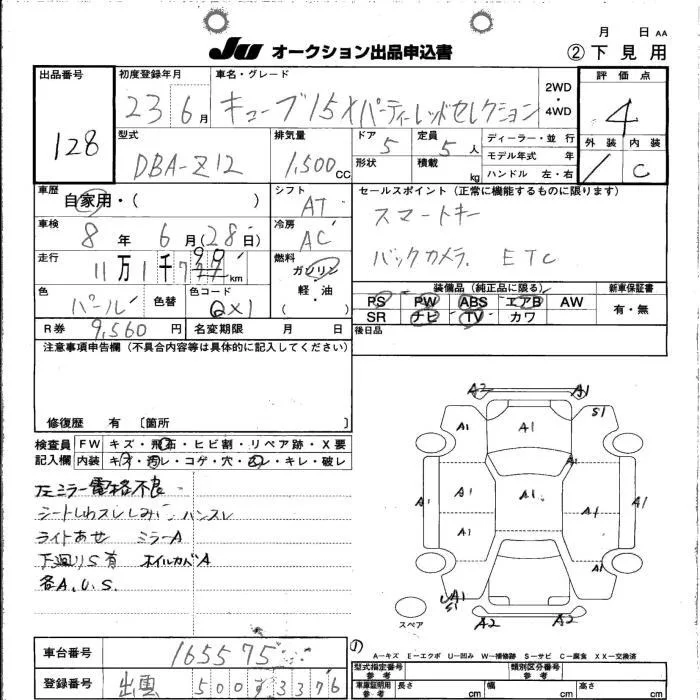 月 日 AA
JU オークション出品申込書
② 下見用
出品番号 128
初度登録年月 23 6月
車名・グレード キューブ15Xパーティーレッドセレクション
2WD・4WD
評価点 4
外装 内装 C
型式 DBA-Z12
排気量 1,500 CC
ドア 5 形状
定員 5人 積載 kg
ディーラー・並行
モデル年式 年
ハンドル 左・右
車歴 自家用・( )
シフト AT
セールスポイント (正常に機能するものに限ります)
スマートキー
バックカメラ. ETC
車検 8年 6月(28日)
冷房 AC
走行 11万1千 km
燃料 ガソリン 軽・油 ( )
色 パール 色替
色コード QX1
R券 9,560 円
名変期限 月 日
装備品 (純正品に限る)
PS PW ABS エアB AW
SR ナビ TV カワ
新車保証書 有・無
後日品
注意事項申告欄 (不具合内容等は具体的に記入してください)
修復歴 有 [箇所 ]
検査員記入欄
FW キズ・飛石・ヒビ割・リペア跡・X要
内装 キズ・汚レ・コゲ・穴・スレ・キレ・破レ
左ミラー電格不良
シートしわスレしみ ハンスレ
ライトあせ ミラーA
下廻りS有 ホイルカバA
各A.U.S.
A2 A1
A1 A1 S1
A1
A1 A1 A1 A1 A1
A1 A1
UA1 S1
A2 A2
スペア
A−キズ E−エクボ U−凹み W−補修跡 S−サビ C−腐食 XX−交換済
車台番号 165575
登録番号 出雲 500 す 3376
型式指定番号 参考
類別区分番号 参考
車庫証明用 参考
長さ cm 幅 cm 高さ cm